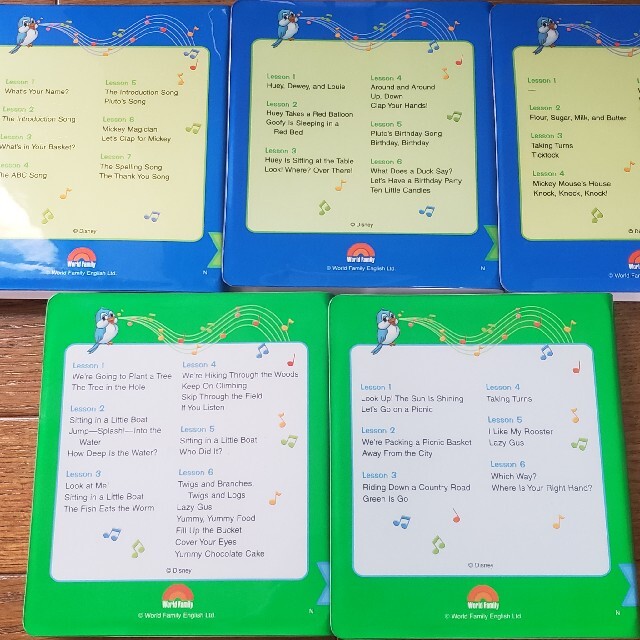 Lesson 1
What's Your Name?
Lesson 2
The Introduction Song
Lesson 3
What's in Your Basket?
Lesson 4
The ABC Song
Lesson 5
The Introduction Song
Pluto's Song
Lesson 6
Mickey Magician
Let's Clap for Mickey
Lesson 7
The Spelling Song
The Thank You Song
© Disney
World Family
© World Family English Ltd.
N
Lesson 1
Huey, Dewey, and Louie
Lesson 2
Huey Takes a Red Balloon
Goofy Is Sleeping in a
Red Bed
Lesson 3
Huey Is Sitting at the Table
Look! Where? Over There!
Lesson 4
Around and Around
Up, Down
Clap Your Hands!
Lesson 5
Pluto's Birthday Song
Birthday, Birthday
Lesson 6
What Does a Duck Say?
Let's Have a Birthday Party
Ten Little Candles
© Disney
World Family
© World Family English Ltd.
N
Lesson 1
—
Lesson 2
Flour, Sugar, Milk, and Butter
Lesson 3
Taking Turns
Ticktock
Lesson 4
Mickey Mouse's House
Knock, Knock, Knock!
World
© World Family
Lesson 1
We're Going to Plant a Tree
The Tree in the Hole
Lesson 2
Sitting in a Little Boat
Jump—Splash!—Into the
Water
How Deep Is the Water?
Lesson 3
Look at Me
Sitting in a Little Boat
The Fish Eats the Worm
Lesson 4
We're Hiking Through the Woods
Keep On Climbing
Skip Through the Field
If You Listen
Lesson 5
Sitting in a Little Boat
Who Did It?
Lesson 6
Twigs and Branches
Twigs and Logs
Lazy Gus
Yummy, Yummy Food
Fill Up the Bucket
Cover Your Eyes
Yummy Chocolate Cake
© Disney
World Family
© World Family English Ltd.
N
Lesson 1
Look Up! The Sun Is Shining
Let's Go on a Picnic
Lesson 2
We're Packing a Picnic Basket
Away From the City
Lesson 3
Riding Down a Country Road
Green Is Go
Lesson 4
Taking Turns
Lesson 5
I Like My Rooster
Lazy Gus
Lesson 6
Which Way?
Where Is Your Right Hand?
© Disney
World Family
© World Family English Ltd.
N